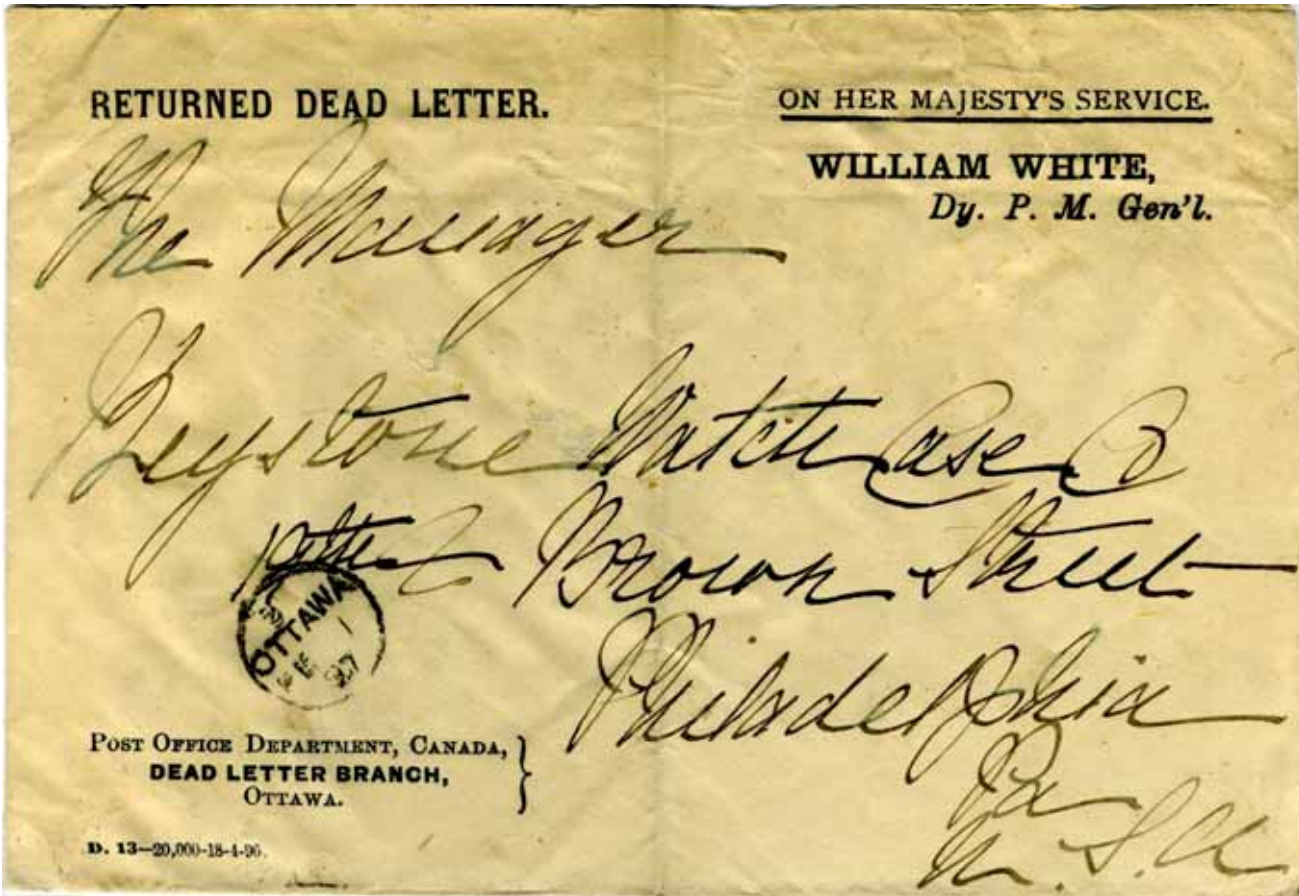 RETURNED DEAD LETTER.
ON HER MAJESTY'S SERVICE.
WILLIAM WHITE,
Dy. P. M. Gen'l.
The Manager
Keystone Watch Case Co
Brown Street
Philadelphia
Pa
U.S.A
OTTAWA
POST OFFICE DEPARTMENT, CANADA,
DEAD LETTER BRANCH,
OTTAWA.
D. 13—20,000-18-4-96.